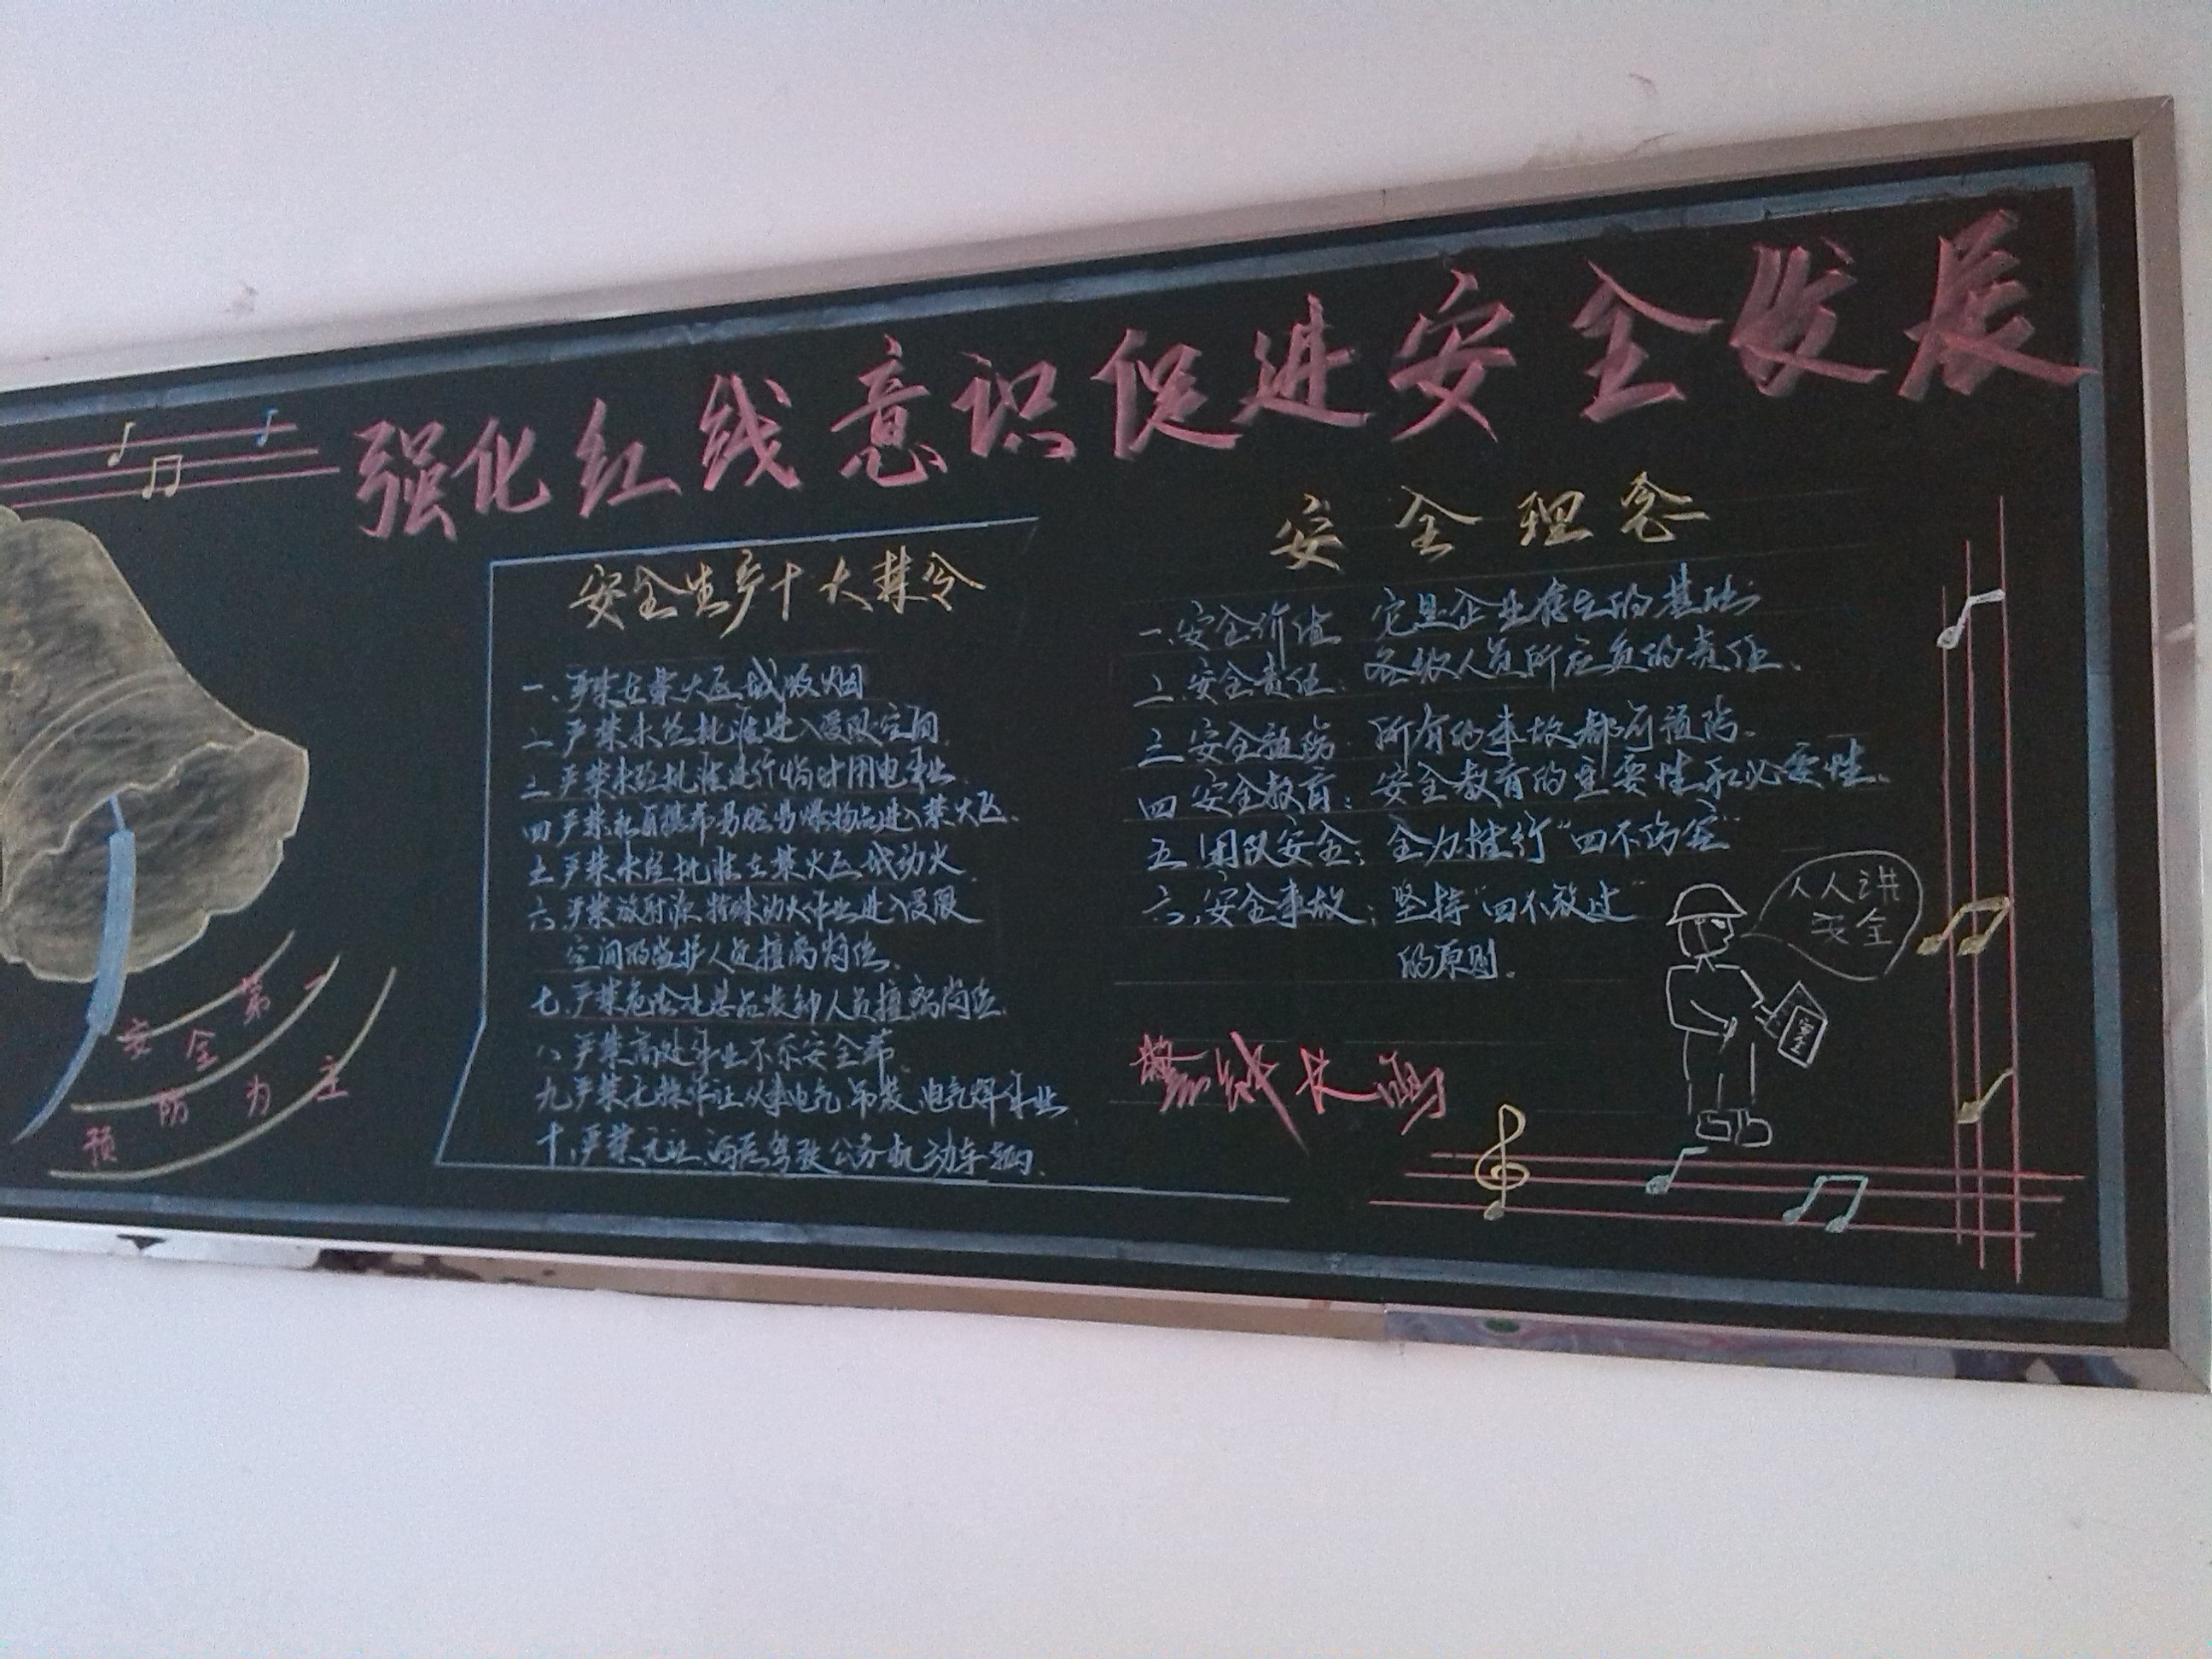 强化红线意识促进安全发展
安全生产十大禁令
一、严禁在禁火区域吸烟
二、严禁未经批准进入受限空间
三、严禁未经批准进行临时用电作业
四、严禁私自携带易燃易爆物品进入禁火区
五、严禁未经批准在禁火区域动火
六、严禁放射源、特殊动火作业、进入受限
空间的监护人员擅离岗位
七、严禁危险化学品装卸人员擅离岗位
八、严禁高处作业不系安全带
九、严禁无操作证从事电气、吊装、电气焊作业
十、严禁无证、酒后驾驶公务机动车辆
安全理念
一、安全价值 它是企业存在的基础
二、安全责任:各级人员所应负的责任、
三、安全预防 所有的事故都可预防。
四 安全教育:安全教育的重要性和必要性。
五 团队安全:全力推行“四不伤害”
六、安全事故:坚持“四不放过”
的原则。
人人讲
安全
安全
警钟长鸣
安全第一
预防为主